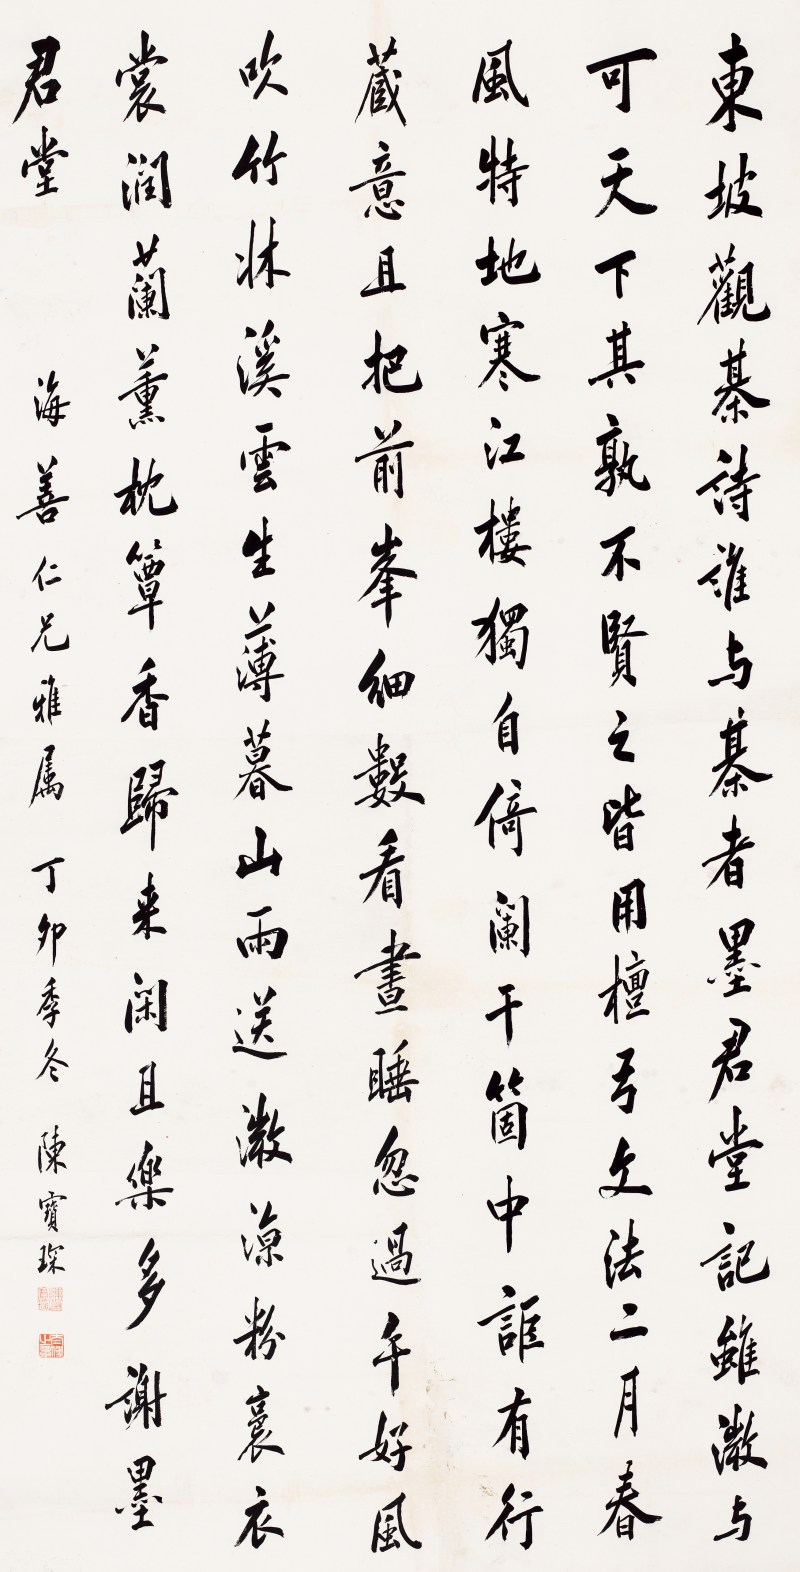 東坡觀棊詩誰与棊者墨君堂記雖澂与
可天下其孰不賢之皆用檀弓文法二月春
風特地寒江樓獨自倚闌干箇中詎有行
藏意且把前峯細數看晝睡忽過午好風
吹竹牀溪雲生薄暮山雨送澂涼粉裛衣
裳潤蘭薰枕簟香歸来闲且樂多謝墨
君堂
海善仁兄雅属 丁卯季冬 陳寶琛